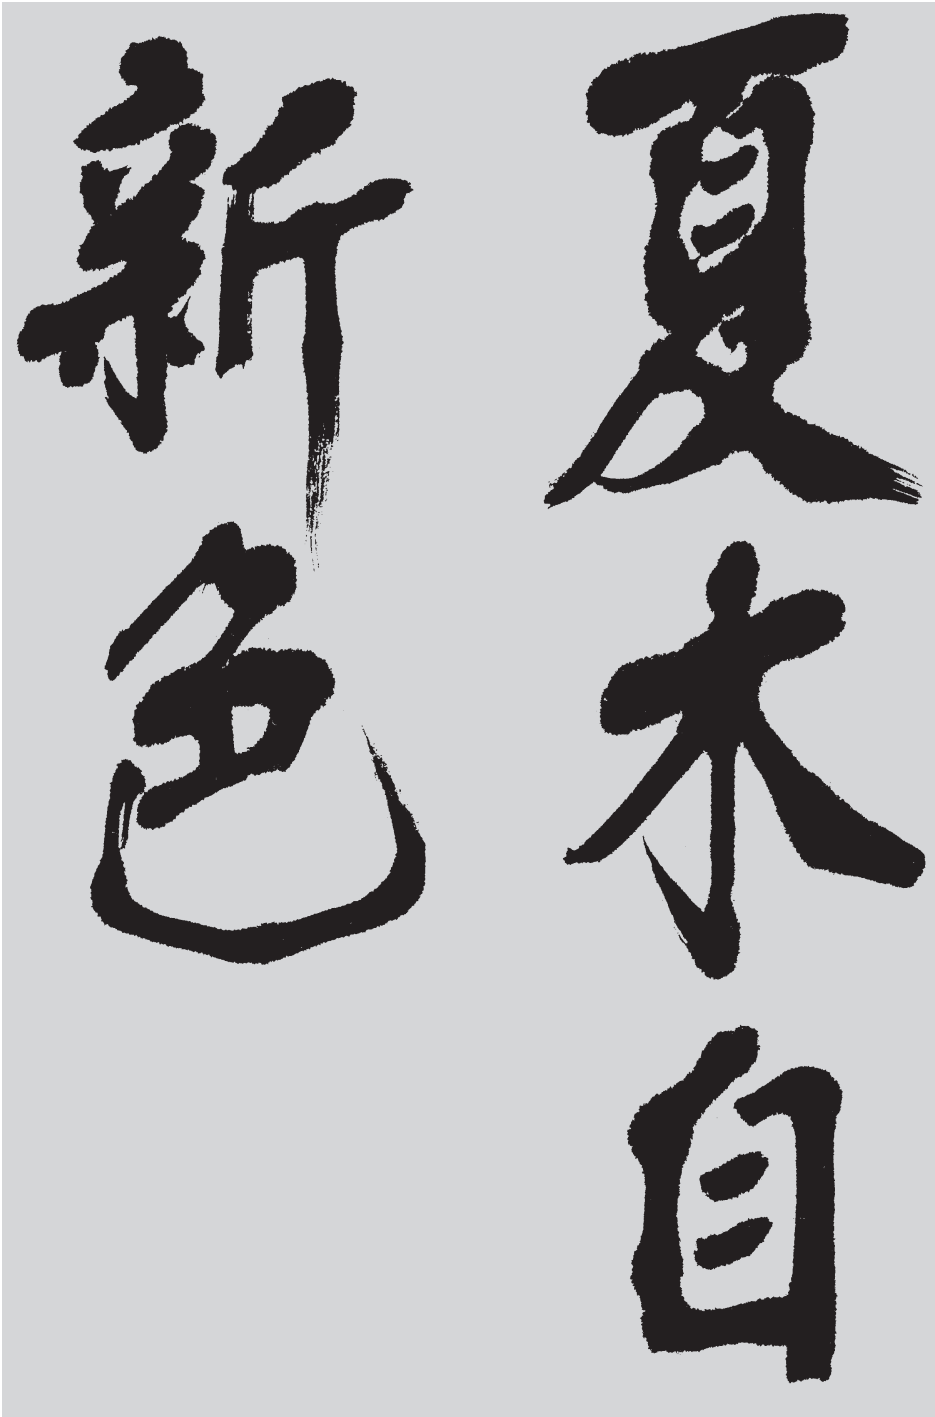 夏木自
新色